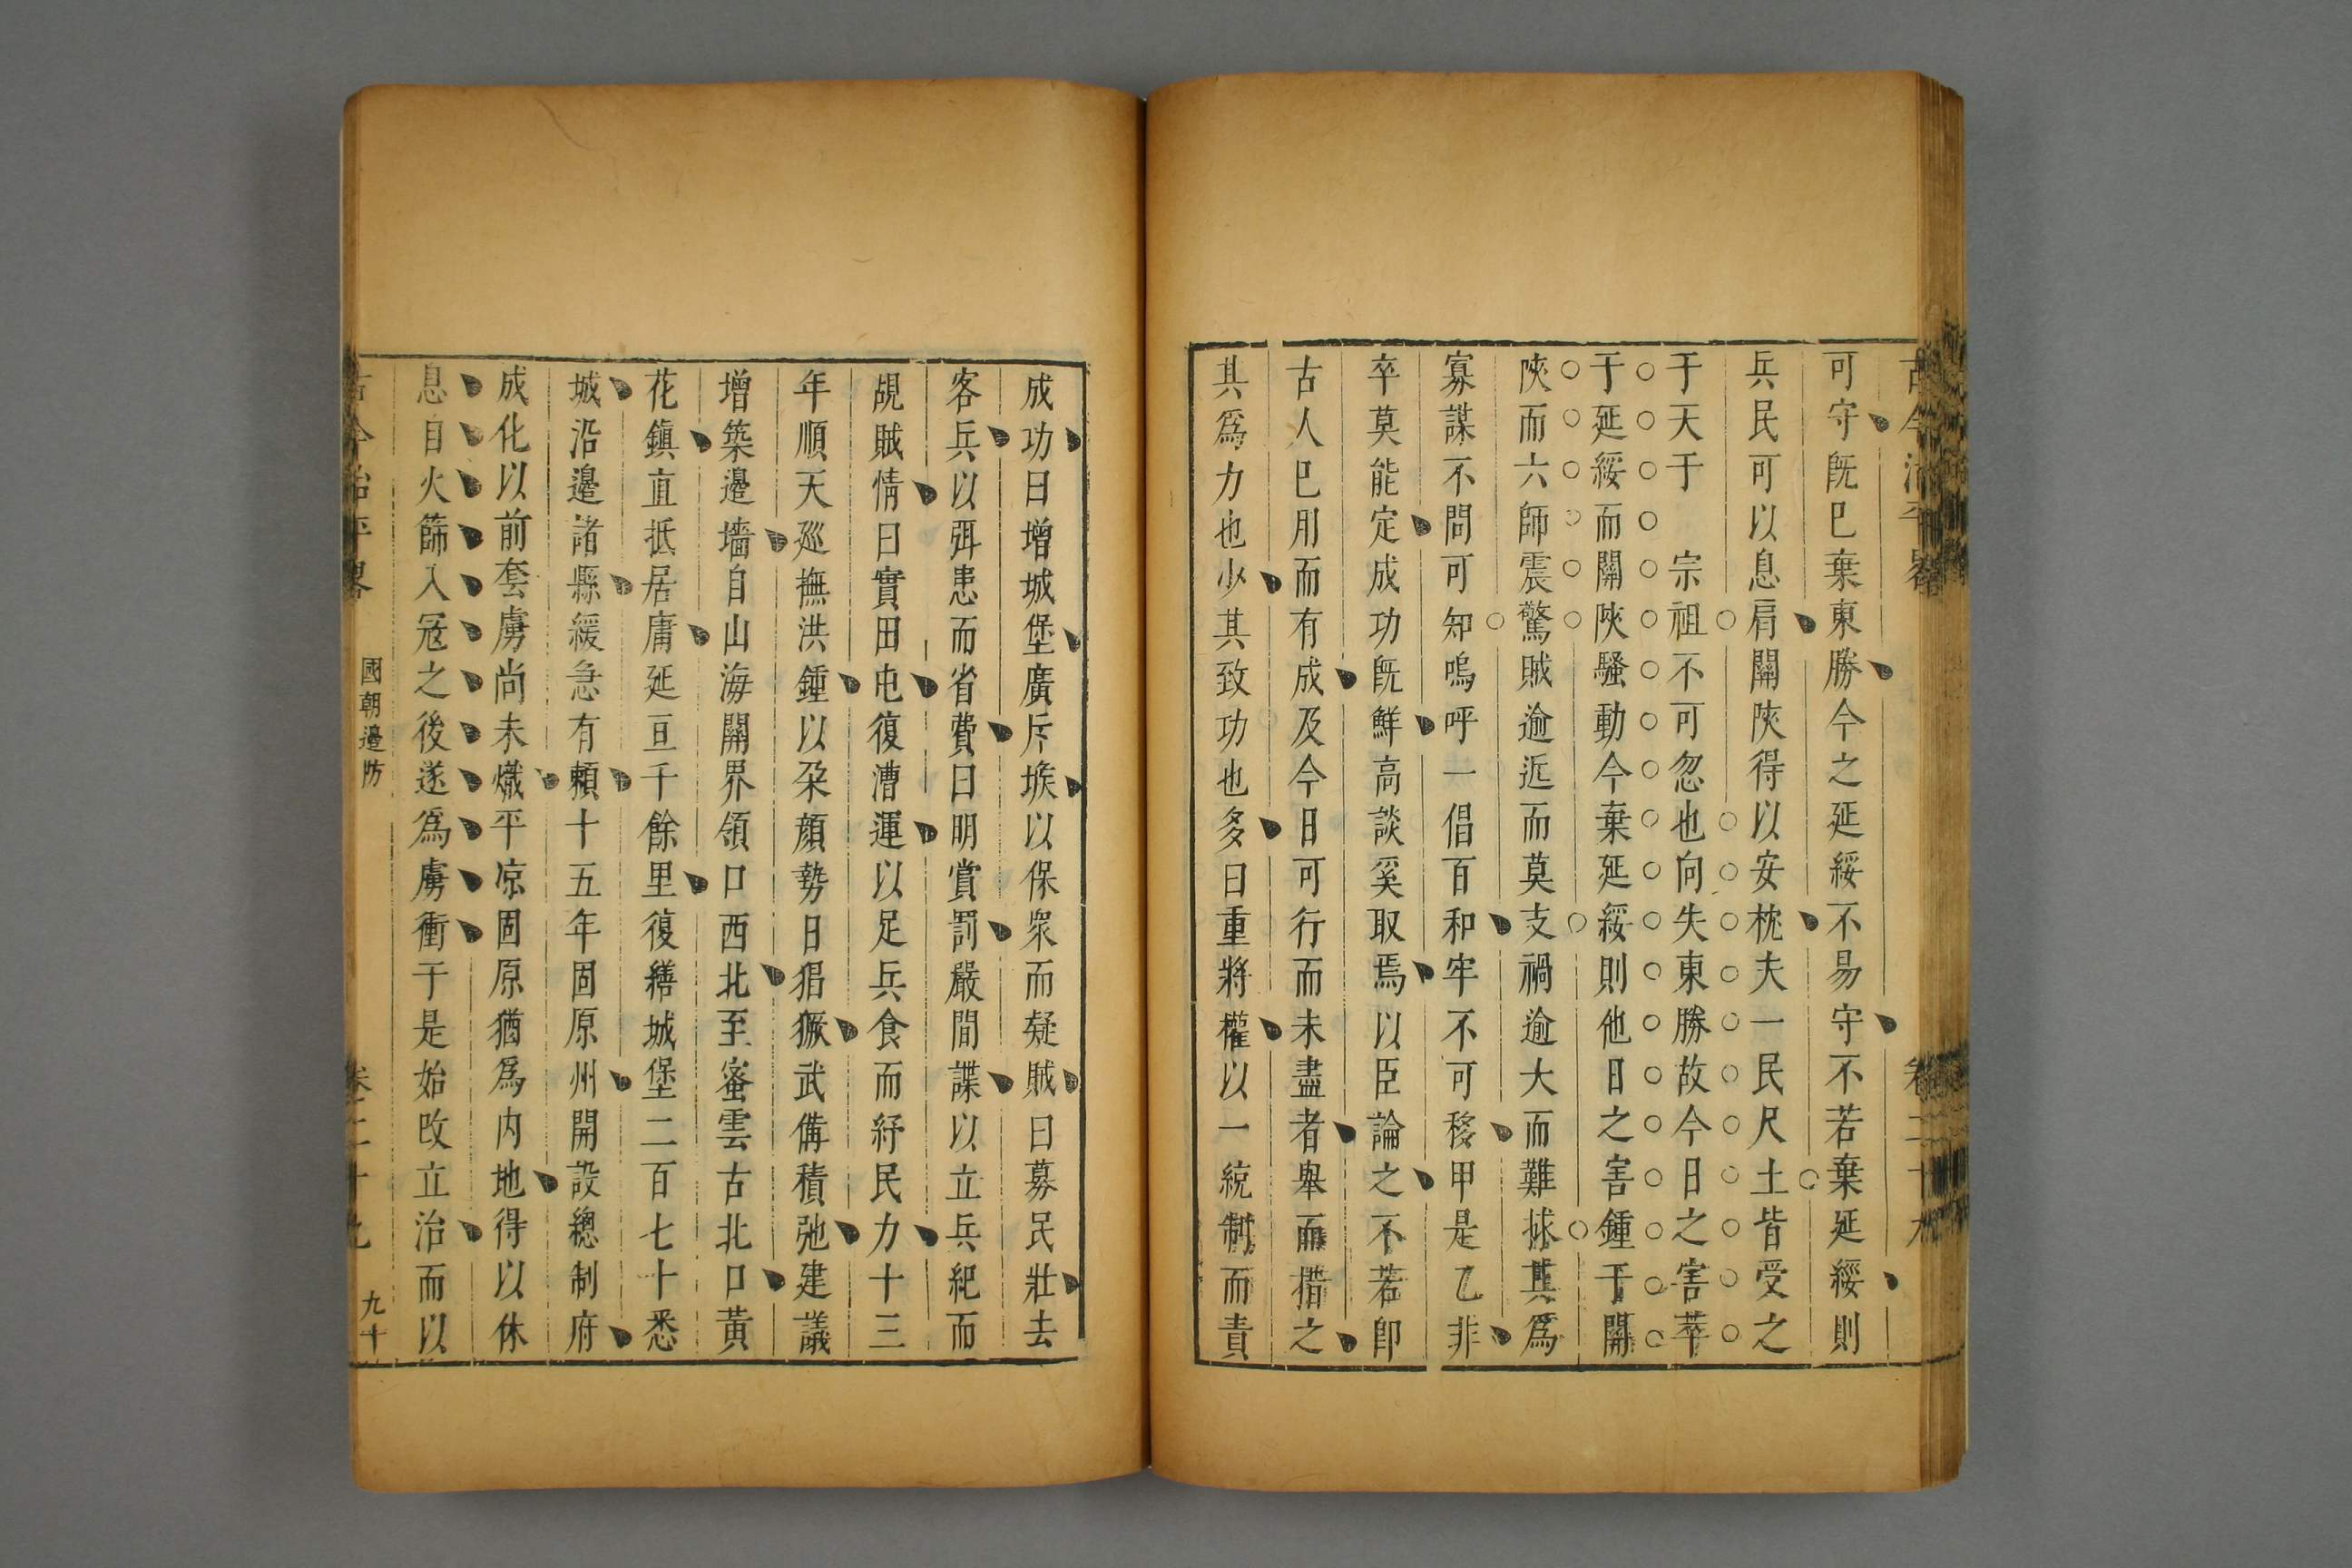 古今治平畧　卷二十九
可守旣已棄東勝今之延綏不易守不若棄延綏則
兵民可以息肩關陝得以安枕夫一民尺土皆受之
于天于　宗祖不可忽也向失東勝故今日之害萃
于延綏而關陝騷動今棄延綏則他日之害鍾于關
陝而六師震驚賊逾近而莫支禍逾大而難捄其爲
寡謀不問可知嗚呼一倡百和牢不可移甲是乙非
卒莫能定成功旣鮮高談奚取焉以臣論之不若卽
古人已用而有成及今日可行而未盡者舉而措之
其爲力也少其致功也多曰重將權以一統制而責
成功曰增城堡廣斥堠以保衆而疑賊曰募民壯去
客兵以弭患而省費曰明賞罰嚴間諜以立兵紀而
覘賊情曰實田屯復漕運以足兵食而紓民力十三
年順天巡撫洪鍾以朶顔勢日猖獗武備積弛建議
增築邊墻自山海關界領口西北至蜜雲古北口黃
花鎭直抵居庸延亘千餘里復繕城堡二百七十悉
城沿邊諸縣緩急有賴十五年固原州開設總制府
成化以前套虜尚未熾平凉固原猶爲内地得以休
息自火篩入冦之後遂爲虜衝于是始改立治而以
古今治平畧　國朝邊防　卷二十九　九十